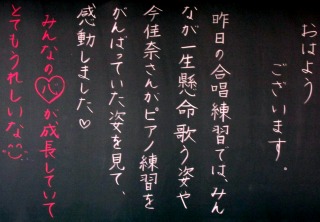 おはよう
ございます。
昨日の合唱練習では、みん
なが一生懸命歌う姿や
今佳奈さんがピアノ練習を
がんばっていた姿を見て、
感動しました♡
みんなの心が、成長していて
とてもうれしいな